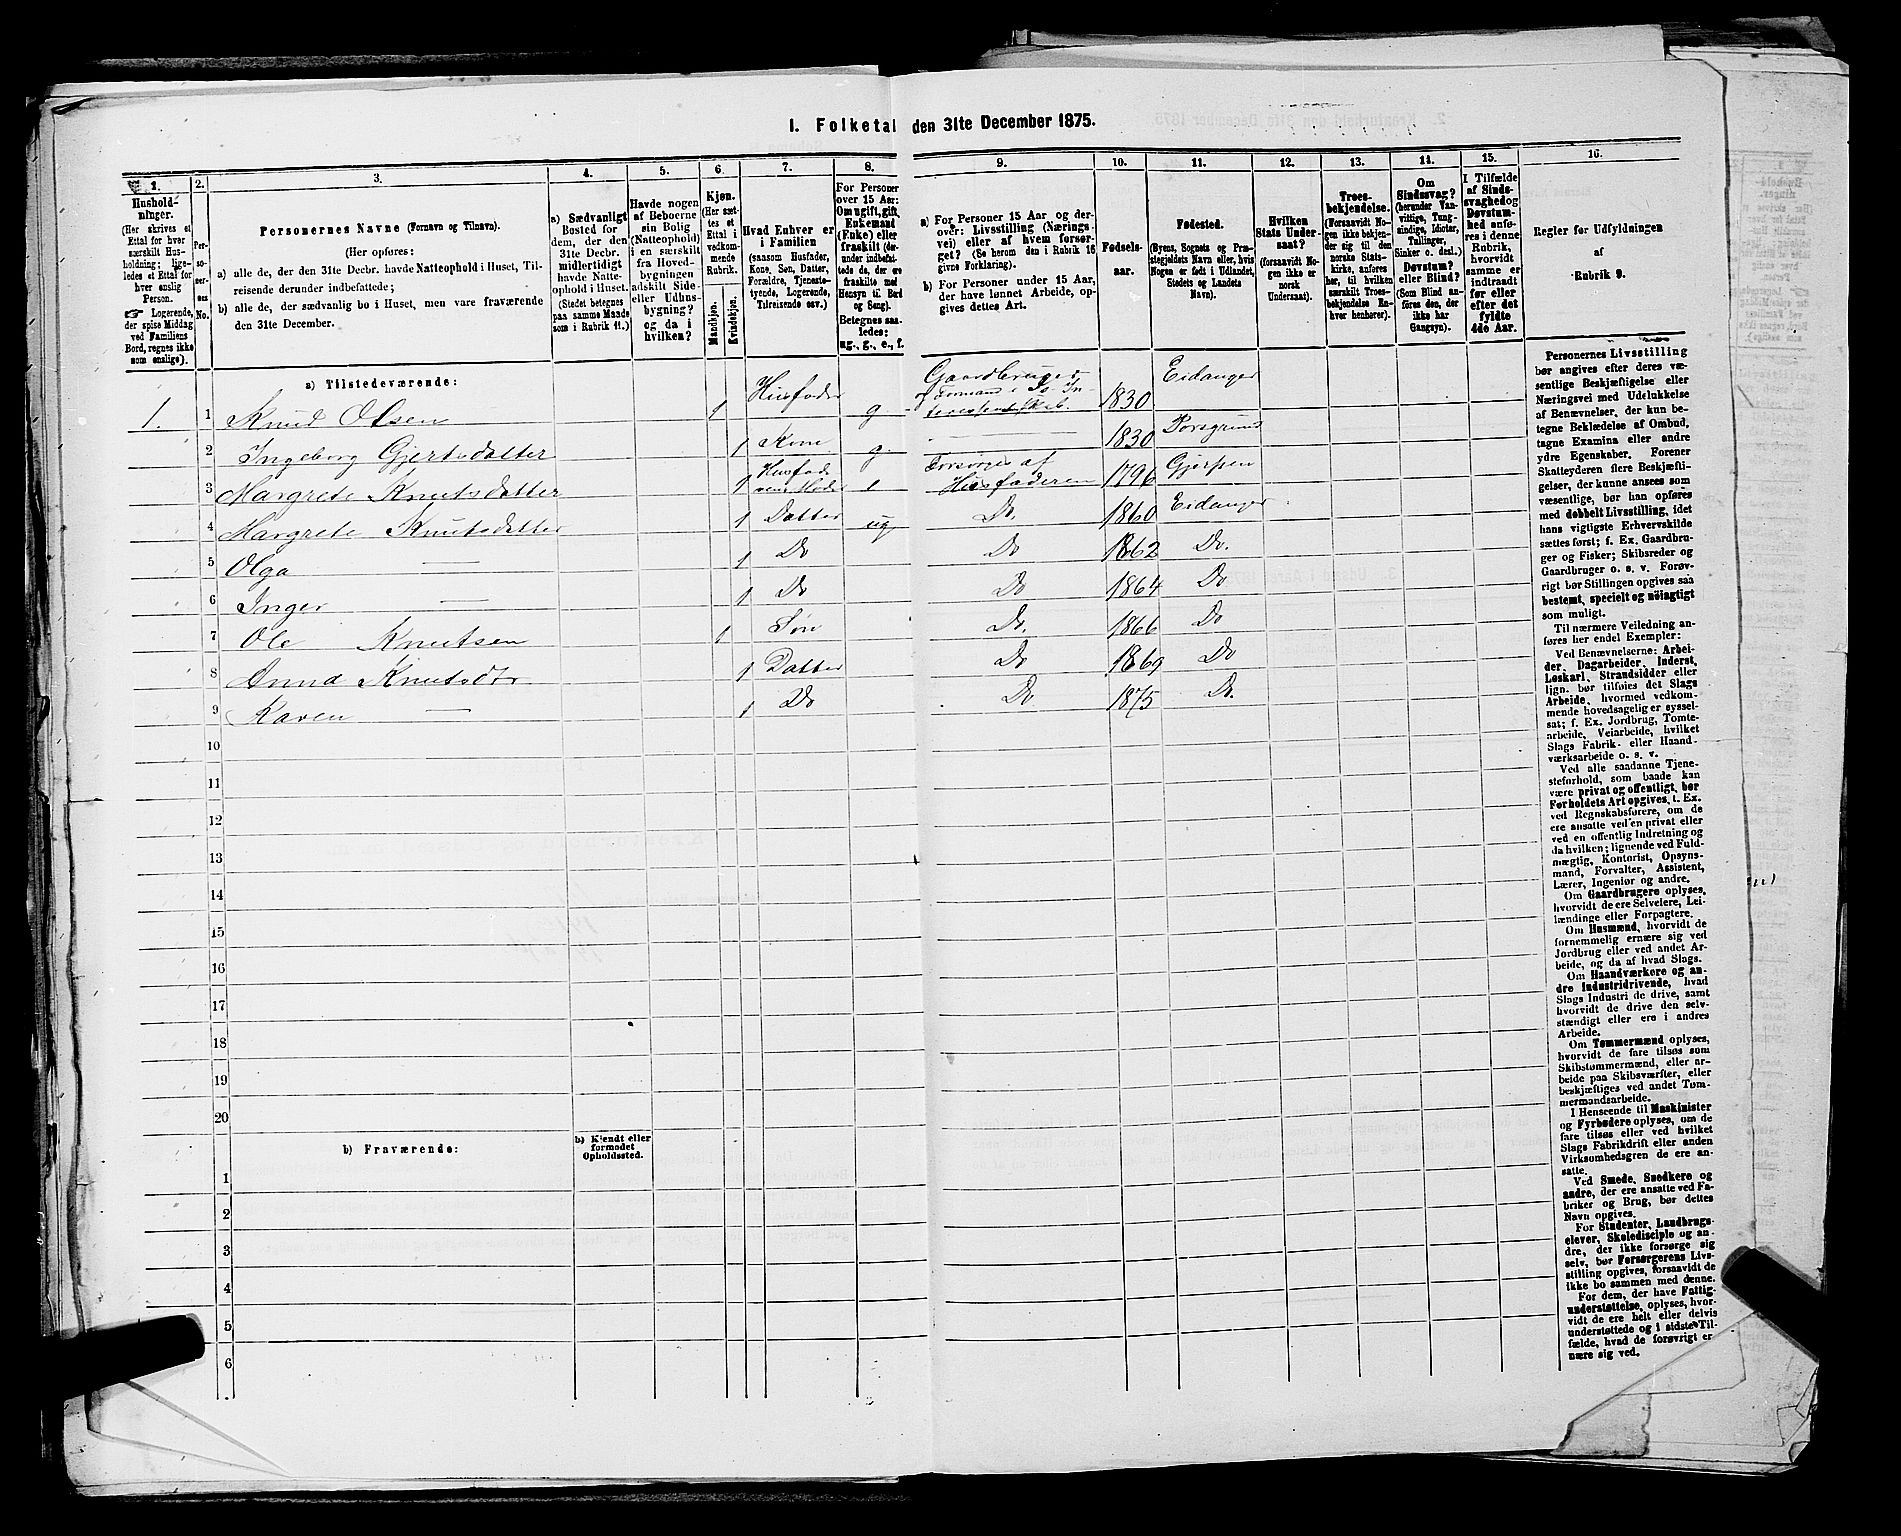 I. Folketal den 31te December 1875.
1. 2. 3. 4. 5. 6. 7. 8. 9. 10. 11. 12. 13. 14. 15. 16.
Hushold-
ninger.
(Her skrives et
Ettal for hver
særskilt Hus-
holdning; lige-
ledes et Ettal for
hver enslig
Person.
Logerende,
der spise Middag
ved Familiens
Bord, regnes ikke
som enslige).
Per-
so-
ner-
nes
No.
Personernes Navne (Fornavn og Tilnavn).
(Her opføres:
a) alle de, der den 31te Decbr. havde Natteophold i Huset, Til-
reisende derunder indbefattede;
b) alle de, der sædvanlig bo i Huset, men vare fraværende
den 31te December.
a) Sædvanligt
Bosted for
dem, der den
31te Decbr.
midlertidigt
havde Natte-
ophold i Huset.
(Stedet betegnes
paa samme Maade
som i Rubrik 11.)
Havde nogen
af Beboerne
sin Bolig
(Natteophold)
i en særskilt
fra Hoved-
bygningen
adskilt Side-
eller Udhus-
bygning?
og da i
hvilken?
Kjøn.
(Her sæt-
tes et
Ettal i
vedkom-
mende
Rubrik.
Mandkjøn.
Kvindekjøn.
Hvad Enhver er
i Familien
(saasom Husfader,
Kone, Søn, Datter,
Forældre, Tjeneste-
tyende, Logerende,
Tilreisende osv.)
For Personer
over 15 Aar:
Om ugift, gift,
Enkemand
(Enke) eller
fraskilt (der-
under indbefat-
tede de, der ere
fraskilte med
Hensyn til Bord
og Seng).
Betegnes saa-
ledes:
ug., g., e., f.
a) For Personer 15 Aar og der-
over: Livsstilling (Nærings-
vei) eller af hvem forsør-
get? (Se herom den i Rubrik 16
givne Forklaring).
b) For Personer under 15 Aar,
der have lønnet Arbeide, op-
gives dettes Art.
Fødsels-
aar.
Fødested.
(Byens, Sognets og Præ-
stegjeldets Navn eller, hvis
Nogen er født i Udlandet,
Stedets og Landets
Navn).
Hvilken
Stats Under-
saat?
(forsaavidt No-
gen ikke er
norsk
Undersaat).
Troes-
bekjendelse.
(Forsaavidt No-
gen ikke bekjen-
der sig til den
norske Stats-
kirke, anføres
her, til hvilken
særskilt Troes-
bekjendelse En-
hver henhører).
Om
Sindssvag?
(herunder Van-
vittige, Tung-
sindige, Idioter,
Tullinger,
Sinker o. desl.).
Døvstum?
eller Blind?
(Som Blind an-
føres den, der
ikke har
Gangsyn).
I Tilfælde
af Sinds-
svaghed og
Døvstum-
hed anfø-
res i denne
Rubrik,
hvorvidt
samme er
indtraadt
før eller
efter det
fyldte
4de Aar.
Regler for Udfyldningen
af
Rubrik 9.
a) Tilstedeværende:
1. 1 Knud Olsen 1 Husfader g Gaardbruger og Formand i Is-In-teressentskab. 1830 Eidanger
2 Ingeborg Gjertsdatter 1 Kone g. — 1830 Porsgrund
3 Margrete Knutsdatter 1 Husfaderens Moder e Forsørges af Husfaderen 1796 Gjerpen
4 Margrete Knutsdatter 1 Datter ug. Do. 1860 Eidanger
5 Olga — 1 Do Do 1862 Do.
6 Inger — 1 Do Do 1864 Do
7 Ole Knutsen 1 Søn Do. 1866 Do
8 Anna Knutsdtr 1 Datter Do 1869 Do
9 Karen — 1 Do Do 1875 Do.
10
11
12
13
14
15
16
17
18
19
20
b) Fraværende:
b) Kjendt eller
formodet
Opholdssted.
1
2
3
4
5
6
Personernes Livsstilling
bør angives efter deres væ-
sentlige Beskjæftigelse eller
Næringsvei med Udelukkelse
af Benævnelser, der kun be-
tegne Beklædelse af Ombud,
tagne Examina eller andre
ydre Egenskaber. Forener
Skatteyderen flere Beskjæfti-
gelser, der kunne ansees som
væsentlige, bør han opføres
med dobbelt Livsstilling, idet
hans vigtigste Erhvervskilde
sættes først; f. Ex. Gaardbru-
ger og Fisker; Skibsreder og
Gaardbruger o. s. v. Forøv-
rigt bør Stillingen opgives saa
bestemt, specielt og nøiagtigt
som muligt.
Til nærmere Veiledning an-
føres her endel Exempler:
Ved Benævnelserne: Arbei-
der, Dagarbeider, Inderst,
Løskarl, Strandsidder eller
lign. bør tilføies det Slags
Arbeide, hvormed vedkom-
mende hovedsagelig er syssel-
sat; f. Ex. Jordbrug, Tomte-
arbeide, Veiarbeide, hvilket
Slags Fabrik- eller Haand-
værksarbeide o. s. v.
Ved alle saadanne Tjene-
steforhold, som baade kan
være privat og offentligt, bør
Forholdets Art opgives, f. Ex.
ved Regnskabsførere, om de
ere ansatte ved en privat eller
ved en offentlig Indretning og
da hvilken; lignende ved Fuld-
mægtig, Kontorist, Opsyns-
mand, Forvalter, Assistent,
Lærer, Ingeniør og andre.
Om Gaardbrugere oplyses,
hvorvidt de ere Selveiere, Lei-
lændinge eller Forpagtere.
Om Husmænd, hvorvidt de
fornemmelig ernære sig ved
Jordbrug eller ved andet Ar-
beide, og da af hvad Slags.
Om Haandværkere og an-
dre Industridrivende, hvad
Slags Industri de drive, samt
hvorvidt de drive den selv-
stændigt eller ere i andres
Arbeide.
Om Tømmermænd oplyses,
hvorvidt de fare tilsøs som
Skibstømmermænd, eller ar-
beide paa Skibsværfter, eller
beskjæftiges ved andet Tøm-
mermandsarbeide.
I Henseende til Maskinister
og Fyrbødere oplyses, om de
fare tilsøs eller ved hvilket
Slags Fabrikdrift eller anden
Virksomhedsgren de ere an-
satte.
Ved Smede, Snedkere og
andre, der ere ansatte ved Fa-
briker og Brug, bør dettes
Navn opgives.
For Studenter, Landbrugs-
elever, Skoledisciple og an-
dre, der ikke forsørge sig
selv, bør Forsørgerens Livs-
stilling opgives, forsaavidt de
ikke bo sammen med denne.
For dem, der have Fattig-
understøttelse, oplyses, hvor-
vidt de ere helt eller delvis
understøttede og i sidste Til-
fælde, hvad de forøvrigt er
nære sig ved.